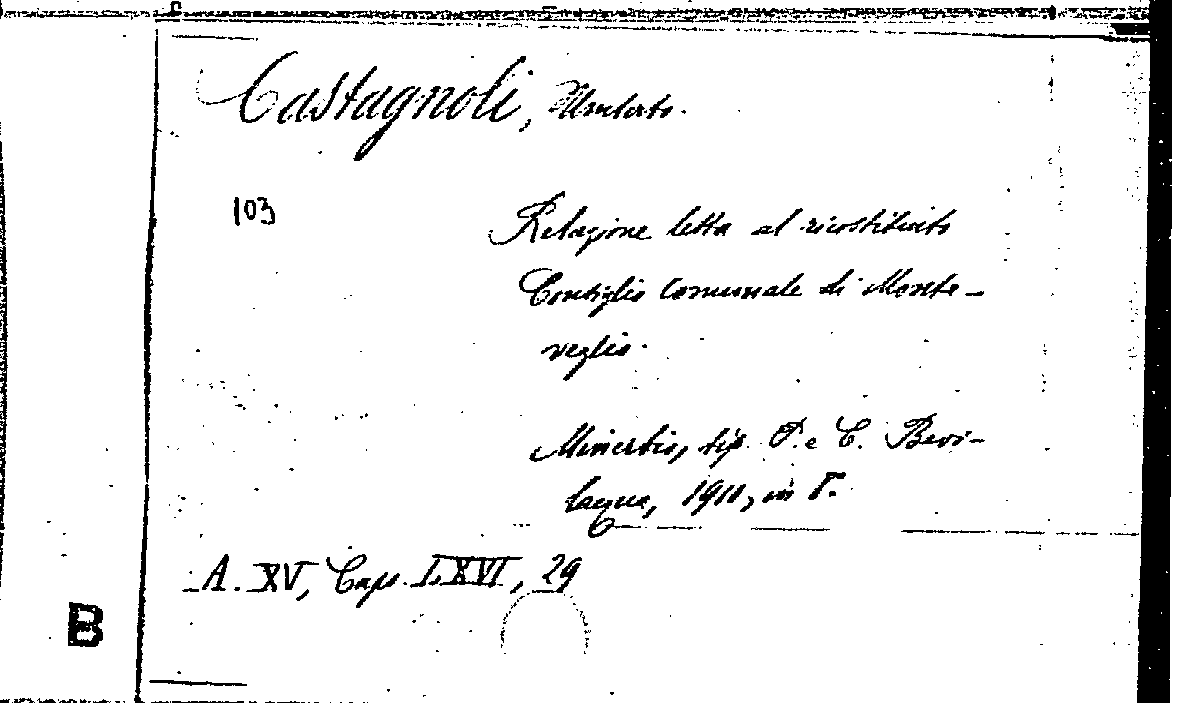 Castagnoli, Umberto.
103
Relazione letta al ricostituito
Consiglio Comunale di Monte-
veglio.
Minerbio, tip. P. e C. Bevi-
lacqua, 1911, in 8°.
A. XV, Caps. LXVI, 29
B